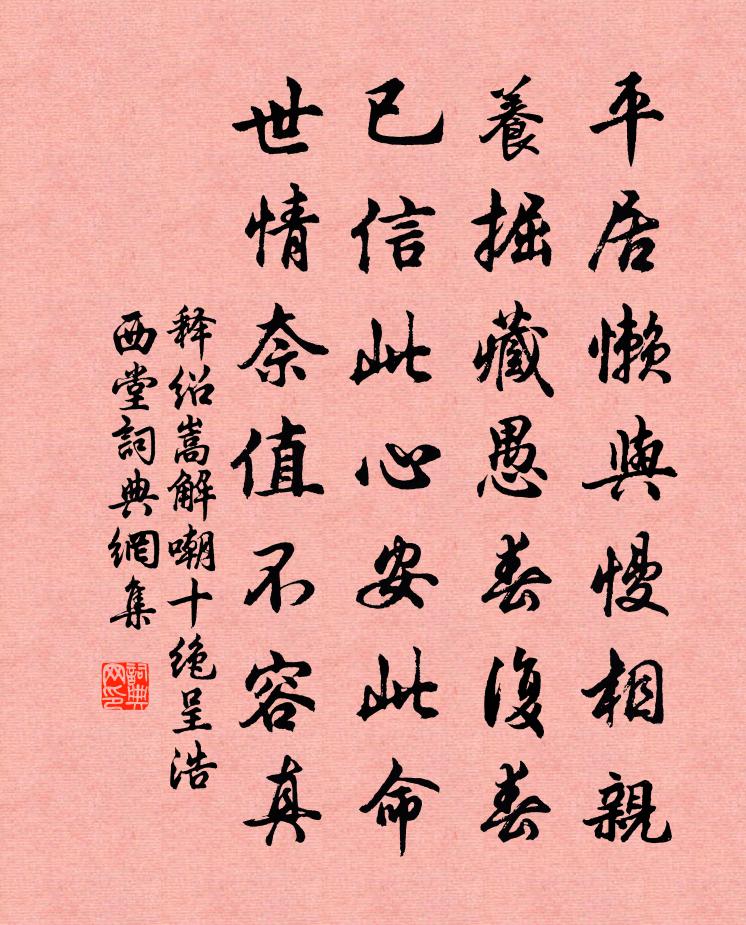 平居懒與慢相親
養掘藏愚春復春
已信此心安此命
世情奈值不容真
释绍嵩解嘲十绝呈浩
西堂詞典網集
詞典
网印